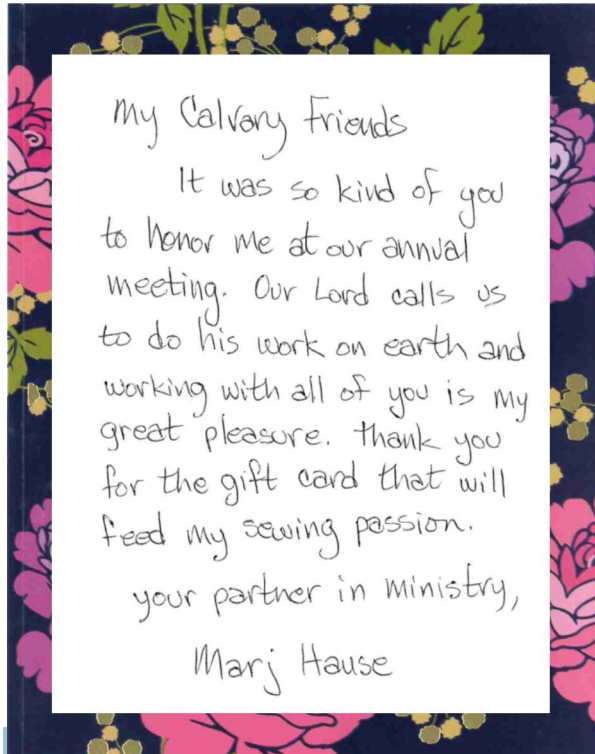 My Calvary Friends
It was so kind of you
to honor me at our annual
meeting. Our Lord calls us
to do his work on earth and
working with all of you is my
great pleasure. Thank you
for the gift card that will
feed my sewing passion.
your partner in ministry,
Marj Hause